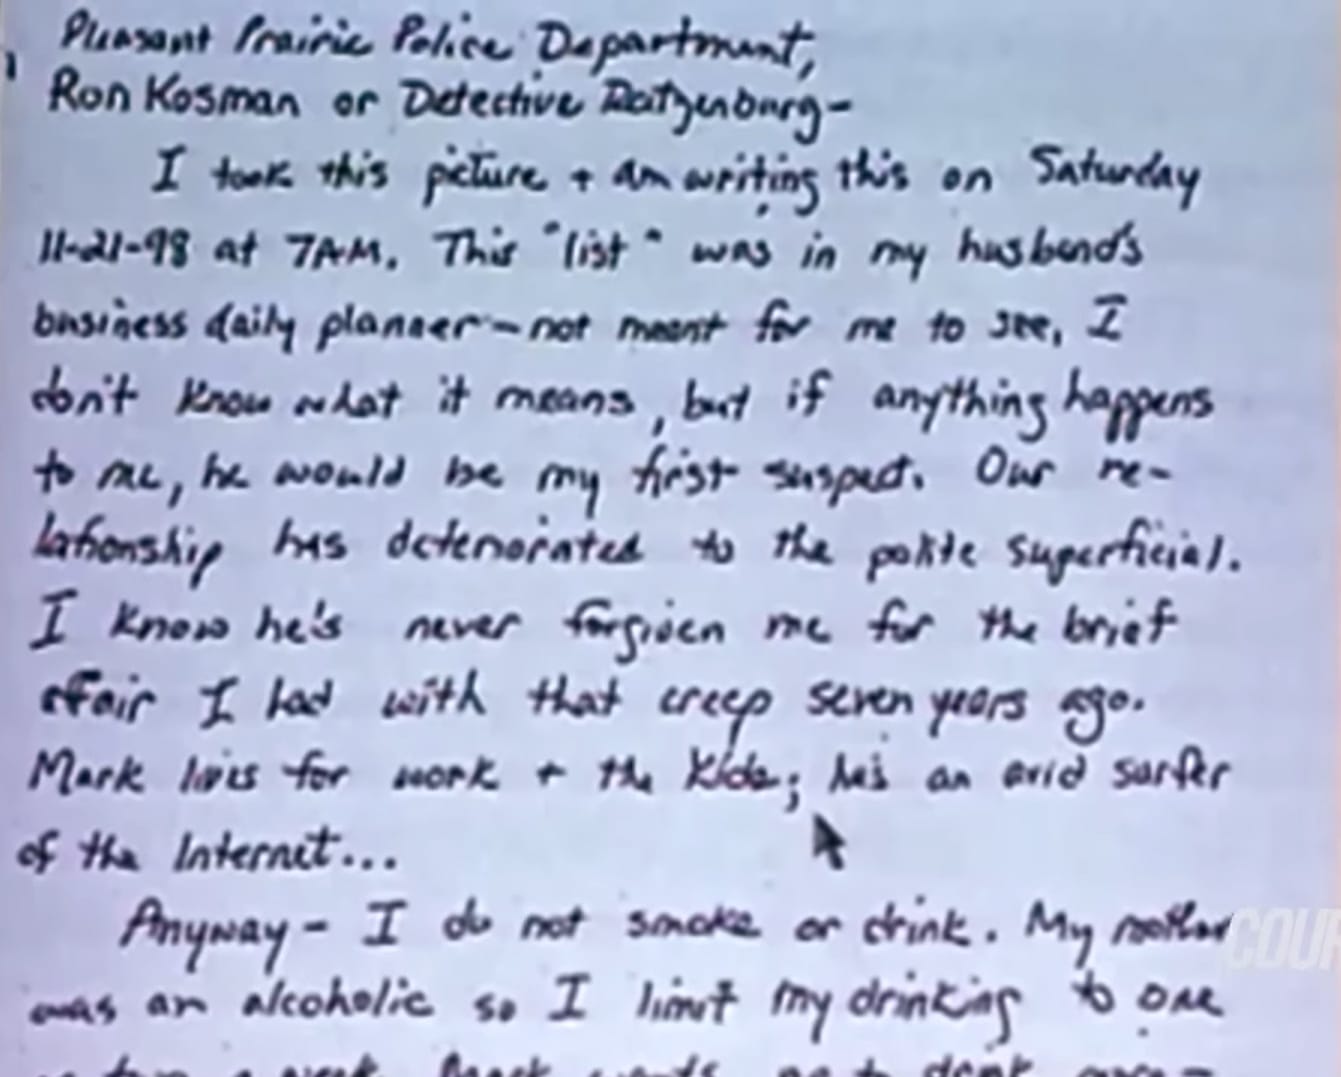 Pleasant Prairie Police Department,
Ron Kosman or Detective Ratzenburg-
I took this picture + am writing this on Saturday
11-21-98 at 7AM. This "list" was in my husband's
business daily planner—not meant for me to see, I
don't know what it means, but if anything happens
to me, he would be my first suspect. Our re-
lationship has deteriorated to the polite superficial.
I know he's never forgiven me for the brief
affair I had with that creep seven years ago.
Mark lives for work + the kids; he's an avid surfer
of the Internet...
Anyway - I do not smoke or drink. My mother
was an alcoholic so I limit my drinking to one
COUR